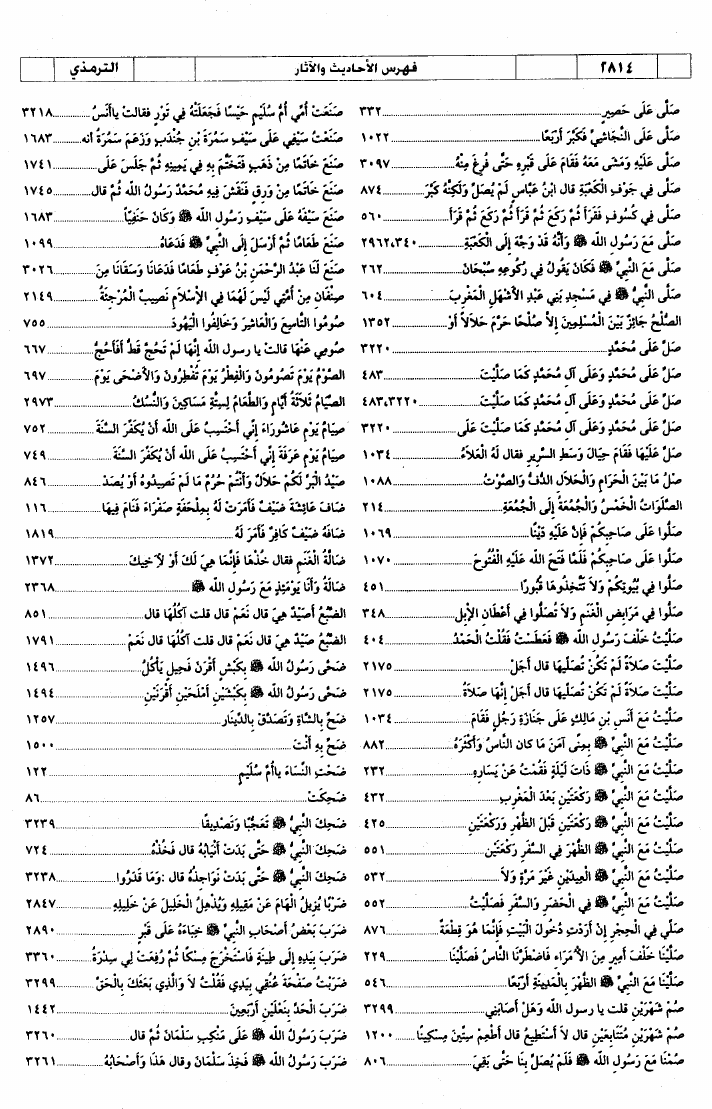 ٢٨١٤ فهرس الأحاديث والآثار الترمذي
صَلَّى عَلَى حَصِيرٍ ... ٣٣٢
صَلَّى عَلَى النَّجَاشِيِّ فَكَبَّرَ أَرْبَعًا ... ١٠٢٢
صَلَّى عَلَيْهِ وَمَشَى مَعَهُ فَقَامَ عَلَى قَبْرِهِ حَتَّى فُرِغَ مِنْهُ ... ٣٠٩٧
صَلَّى فِي جَوْفِ الْكَعْبَةِ قال ابنُ عبَّاسٍ لَمْ يُصَلِّ وَلَكِنَّهُ كَبَّرَ ... ٨٧٤
صَلَّى فِي كُسُوفٍ فَقَرَأَ ثُمَّ رَكَعَ ثُمَّ قَرَأَ ثُمَّ رَكَعَ ثُمَّ قَرَأَ ... ٥٦٠
صَلَّى مَعَ رَسُولِ الله ﷺ وَأَنَّهُ قَدْ وَجَّهَ إِلَى الْكَعْبَةِ ... ٢٩٦٢،٣٤٠
صَلَّى مَعَ النَّبيِّ ﷺ فَكَانَ يَقُولُ فِي رُكُوعِهِ سُبْحَانَ ... ٢٦٢
صَلَّى النَّبيُّ ﷺ فِي مَسْجِدِ بَنِي عَبْدِ الأَشْهَلِ الْمَغْرِبَ ... ٦٠٤
الصُّلْحُ جَائِزٌ بَيْنَ الْمُسْلِمِينَ إِلاَّ صُلْحًا حَرَّمَ حَلاَلاً أَوْ ... ١٣٥٢
صَلِّ عَلَى مُحَمَّدٍ ... ٣٢٢٠
صَلِّ عَلَى مُحَمَّدٍ وَعَلَى آلِ مُحَمَّدٍ كَمَا صَلَّيْتَ ... ٤٨٣
صَلِّ عَلَى مُحَمَّدٍ وَعَلَى آلِ مُحَمَّدٍ كَمَا صَلَّيْتَ ... ٤٨٣،٣٢٢٠
صَلِّ عَلَى مُحَمَّدٍ وَعَلَى آلِ مُحَمَّدٍ كَمَا صَلَّيْتَ عَلَى ... ٣٢٢٠
صَلِّ عَلَيْهَا فَقَامَ حِيَالَ وَسَطِ السَّرِيرِ فقال لَهُ الْعَلاَءُ ... ١٠٣٤
فَصْلُ مَا بَيْنَ الْحَرَامِ وَالْحَلاَلِ الدُّفُّ وَالصَّوْتُ ... ١٠٨٨
الصَّلَوَاتُ الْخَمْسُ وَالْجُمُعَةُ إِلَى الْجُمُعَةِ ... ٢١٤
صَلُّوا عَلَى صَاحِبِكُمْ فَإِنَّ عَلَيْهِ دَيْنًا ... ١٠٦٩
صَلُّوا عَلَى صَاحِبِكُمْ فَلَمَّا فَتَحَ الله عَلَيْهِ الْفُتُوحَ ... ١٠٧٠
صَلُّوا فِي بُيُوتِكُمْ وَلاَ تَتَّخِذُوهَا قُبُورًا ... ٤٥١
صَلُّوا فِي مَرَابِضِ الْغَنَمِ وَلاَ تُصَلُّوا فِي أَعْطَانِ الإِبِلِ ... ٣٤٨
صَلَّيْتُ خَلْفَ رَسُولِ الله ﷺ فَعَطَسْتُ فَقُلْتُ الْحَمْدُ ... ٤٠٤
صَلَّيْتَ صَلاَةً لَمْ تَكُنْ تُصَلِّيهَا قال أَجَلْ ... ٢١٧٥
صَلَّيْتَ صَلاَةً لَمْ تَكُنْ تُصَلِّيهَا قال أَجَلْ إِنَّهَا صَلاَةُ ... ٢١٧٥
صَلَّيْتُ مَعَ أَنَسِ بْنِ مَالِكٍ عَلَى جَنَازَةِ رَجُلٍ فَقَامَ ... ١٠٣٤
صَلَّيْتُ مَعَ النَّبيِّ ﷺ بِمِنًى آمَنَ مَا كان النَّاسُ وَأَكْثَرَهُ ... ٨٨٢
صَلَّيْتُ مَعَ النَّبيِّ ﷺ ذَاتَ لَيْلَةٍ فَقُمْتُ عَنْ يَسَارِهِ ... ٢٣٢
صَلَّيْتُ مَعَ النَّبيِّ ﷺ رَكْعَتَيْنِ بَعْدَ الْمَغْرِبِ ... ٤٣٢
صَلَّيْتُ مَعَ النَّبيِّ ﷺ رَكْعَتَيْنِ قَبْلَ الظُّهْرِ وَرَكْعَتَيْنِ ... ٤٢٥
صَلَّيْتُ مَعَ النَّبيِّ ﷺ الظُّهْرَ فِي السَّفَرِ رَكْعَتَيْنِ ... ٥٥١
صَلَّيْتُ مَعَ النَّبيِّ ﷺ الْعِيدَيْنِ غَيْرَ مَرَّةٍ وَلاَ ... ٥٣٢
صَلَّيْتُ مَعَ النَّبيِّ ﷺ فِي الْحَضَرِ وَالسَّفَرِ فَصَلَّيْتُ ... ٥٥٢
صَلِّي فِي الْحِجْرِ إِنْ أَرَدْتِ دُخُولَ الْبَيْتِ فَإِنَّمَا هُوَ قِطْعَةٌ ... ٨٧٦
صَلَّيْنَا خَلْفَ أَمِيرٍ مِنَ الأُمَرَاءِ فَاضْطَرَّنَا النَّاسُ فَصَلَّيْنَا ... ٢٢٩
صَلَّيْنَا مَعَ النَّبيِّ ﷺ الظُّهْرَ بِالْمَدِينَةِ أَرْبَعًا ... ٥٤٦
صُمْ شَهْرَيْنِ قلت يا رسول الله وَهَلْ أَصَابَنِي ... ٣٢٩٩
صُمْ شَهْرَيْنِ مُتَتَابِعَيْنِ قال لاَ أَسْتَطِيعُ قال أَطْعِمْ سِتِّينَ مِسْكِينًا ... ١٢٠٠
صُمْنَا مَعَ رَسُولِ الله ﷺ فَلَمْ يُصَلِّ بِنَا حَتَّى بَقِيَ ... ٨٠٦
صَنَعَتْ أُمِّي أُمُّ سُلَيْمٍ حَيْسًا فَجَعَلَتْهُ فِي تَوْرٍ فقالت ياأَنَسُ ... ٣٢١٨
صَنَعْتُ سَيْفِي عَلَى سَيْفِ سَمُرَةَ بنِ جُنْدَبٍ وَزَعَمَ سَمُرَةُ انه ... ١٦٨٣
صَنَعَ خَاتَمًا مِنْ ذَهَبٍ فَتَخَتَّمَ بِهِ فِي يَمِينِهِ ثُمَّ جَلَسَ عَلَى ... ١٧٤١
صَنَعَ خَاتَمًا مِنْ وَرِقٍ فَنَقَشَ فِيهِ مُحَمَّدٌ رَسُولُ الله ثُمَّ قال ... ١٧٤٥
صَنَعَ سَيْفَهُ عَلَى سَيْفِ رَسُولِ الله ﷺ وَكَانَ حَنَفِيًّا ... ١٦٨٣
صَنَعَ طَعَامًا ثُمَّ أَرْسَلَ إِلَى النَّبيِّ ﷺ فَدَعَاهُ ... ١٠٩٩
صَنَعَ لَنَا عَبْدُ الرَّحْمَنِ بْنُ عَوْفٍ طَعَامًا فَدَعَانَا وَسَقَانَا مِنَ ... ٣٠٢٦
صِنْفَانِ مِنْ أُمَّتِي لَيْسَ لَهُمَا فِي الإِسْلاَمِ نَصِيبٌ الْمُرْجِئَةُ ... ٢١٤٩
صُومُوا التَّاسِعَ وَالْعَاشِرَ وَخَالِفُوا الْيَهُودَ ... ٧٥٥
صُومِي عَنْهَا قالت يا رسول الله إِنَّهَا لَمْ تَحُجَّ قَطُّ أَفَأَحُجُّ ... ٦٦٧
الصَّوْمُ يَوْمَ تَصُومُونَ وَالْفِطْرُ يَوْمَ تُفْطِرُونَ وَالأَضْحَى يَوْمَ ... ٦٩٧
الصِّيَامُ ثَلاَثَةُ أَيَّامٍ وَالطَّعَامُ لِسِتَّةِ مَسَاكِينَ وَالنُّسُكُ ... ٢٩٧٣
صِيَامُ يَوْمِ عَاشُورَاءَ إِنِّي أَحْتَسِبُ عَلَى الله أَنْ يُكَفِّرَ السَّنَةَ ... ٧٥٢
صِيَامُ يَوْمِ عَرَفَةَ إِنِّي أَحْتَسِبُ عَلَى الله أَنْ يُكَفِّرَ السَّنَةَ ... ٧٤٩
صَيْدُ الْبَرِّ لَكُمْ حَلاَلٌ وَأَنْتُمْ حُرُمٌ مَا لَمْ تَصِيدُوهُ أَوْ يُصَدْ ... ٨٤٦
ضَافَ عَائِشَةَ ضَيْفٌ فَأَمَرَتْ لَهُ بِمِلْحَفَةٍ صَفْرَاءَ فَنَامَ فِيهَا ... ١١٦
ضَافَهُ ضَيْفٌ كَافِرٌ فَأَمَرَ لَهُ ... ١٨١٩
ضَالَّةُ الْغَنَمِ فقال خُذْهَا فَإِنَّمَا هِيَ لَكَ أَوْ لأَخِيكَ ... ١٣٧٢
ضَالَّةُ وَأَنَا يَوْمَئِذٍ مَعَ رَسُولِ الله ﷺ ... ٢٣٦٨
الضَّبُعُ أَصَيْدٌ هِيَ قال نَعَمْ قال قلت آكُلُهَا قال ... ٨٥١
الضَّبُعُ صَيْدٌ هِيَ قال نَعَمْ قال قلت آكُلُهَا قال نَعَمْ ... ١٧٩١
ضَحَّى رَسُولُ الله ﷺ بِكَبْشٍ أَقْرَنَ فَحِيلٍ يَأْكُلُ ... ١٤٩٦
ضَحَّى رَسُولُ الله ﷺ بِكَبْشَيْنِ أَمْلَحَيْنِ أَقْرَنَيْنِ ... ١٤٩٤
ضَحِّ بِالشَّاةِ وَتَصَدَّقْ بِالدِّينَارِ ... ١٢٥٧
ضَحِّ بِهِ أَنْتَ ... ١٥٠٠
ضَحَتِ النِّسَاءَ ياأُمَّ سُلَيْمٍ ... ١٢٢
ضَحِكَتْ ... ٨٦
ضَحِكَ النَّبيُّ ﷺ تَعَجُّبًا وَتَصْدِيقًا ... ٣٢٣٩
ضَحِكَ النَّبيُّ ﷺ حَتَّى بَدَتْ أَنْيَابُهُ قال فَخُذْهُ ... ٧٢٤
ضَحِكَ النَّبيُّ ﷺ حَتَّى بَدَتْ نَوَاجِذُهُ قال :وَمَا قَدَرُوا ... ٣٢٣٨
ضَرْبًا يُزِيلُ الْهَامَ عَنْ مَقِيلِهِ وَيُذْهِلُ الْخَلِيلَ عَنْ خَلِيلِهِ ... ٢٨٤٧
ضَرَبَ بَعْضُ أَصْحَابِ النَّبيِّ ﷺ خِبَاءَهُ عَلَى قَبْرٍ ... ٢٨٩٠
ضَرَبَ بِيَدِهِ إِلَى طِينَةٍ فَاسْتَخْرَجَ مِسْكًا ثُمَّ رُفِعَتْ لِي سِدْرَةُ ... ٣٣٦٠
ضَرَبْتُ صَفْحَةَ عُنُقِي بِيَدِي فَقُلْتُ لاَ وَالَّذِي بَعَثَكَ بِالْحَقِّ ... ٣٢٩٩
ضَرَبَ الْحَدَّ بِنَعْلَيْنِ أَرْبَعِينَ ... ١٤٤٢
ضَرَبَ رَسُولُ الله ﷺ عَلَى مَنْكِبِ سَلْمَانَ ثُمَّ قال ... ٣٢٦٠
ضَرَبَ رَسُولُ الله ﷺ فَخِذَ سَلْمَانَ وقال هَذَا وَأَصْحَابُهُ ... ٣٢٦١